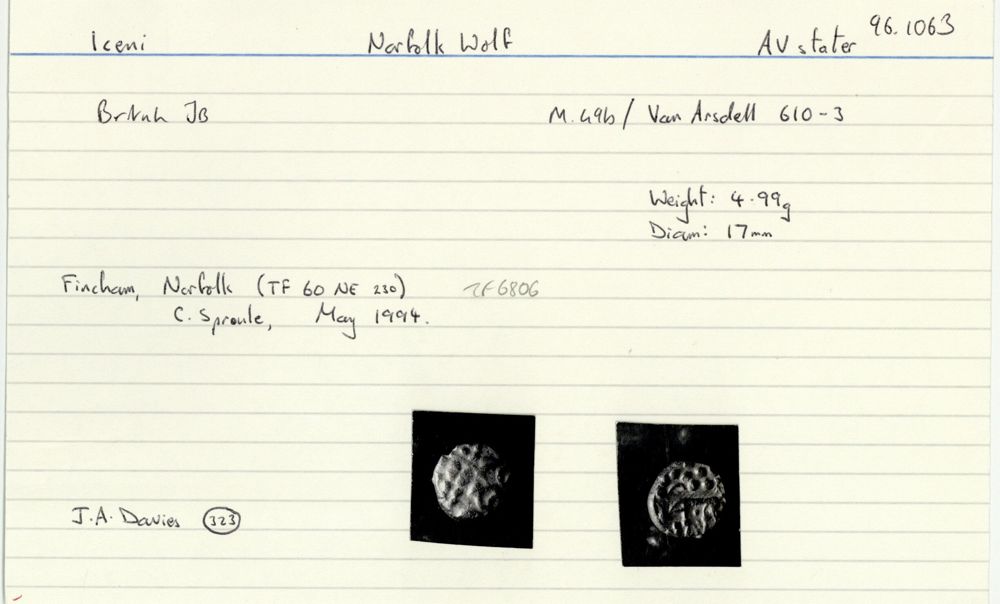 96.1063
Iceni Norfolk Wolf AV stater
British JB M.49b/ Van Arsdell 610-3
Weight: 4.99g
Diam: 17mm
Fincham, Norfolk (TF 60 NE 230) TF6806
C. Sproule, May 1994.
J.A. Davies 323